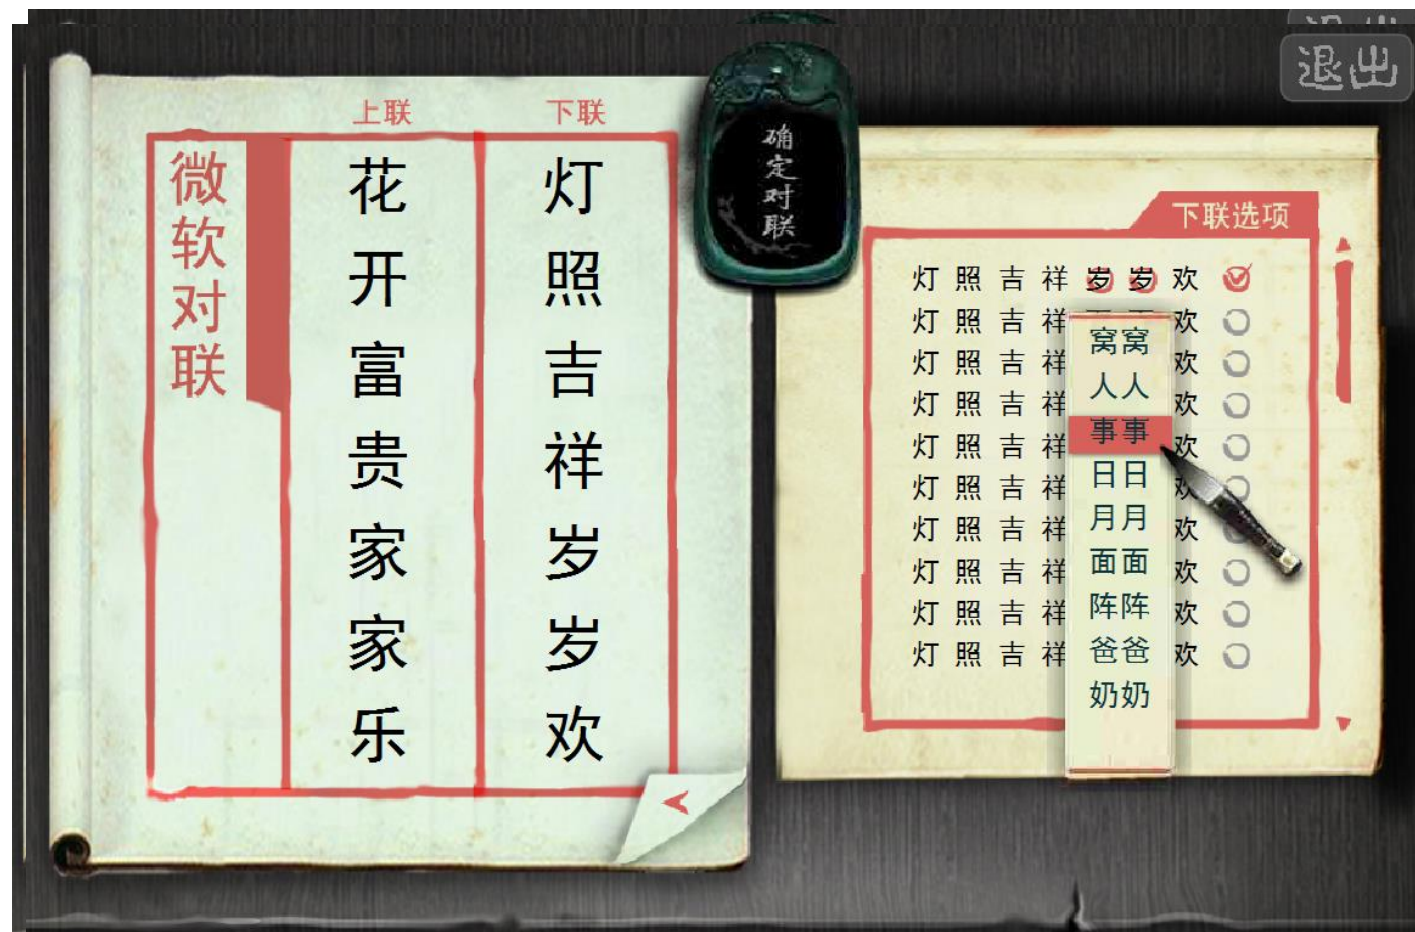 退出
退出
上联
下联
微软对联
花开富贵家家乐
灯照吉祥岁岁欢
确定对联
下联选项
灯照吉祥岁岁欢
灯照吉祥 欢
灯照吉祥 欢
灯照吉祥 欢
灯照吉祥 欢
灯照吉祥 欢
灯照吉祥 欢
灯照吉祥 欢
灯照吉祥 欢
灯照吉祥 欢
窝窝
人人
事事
日日
月月
面面
阵阵
爸爸
奶奶